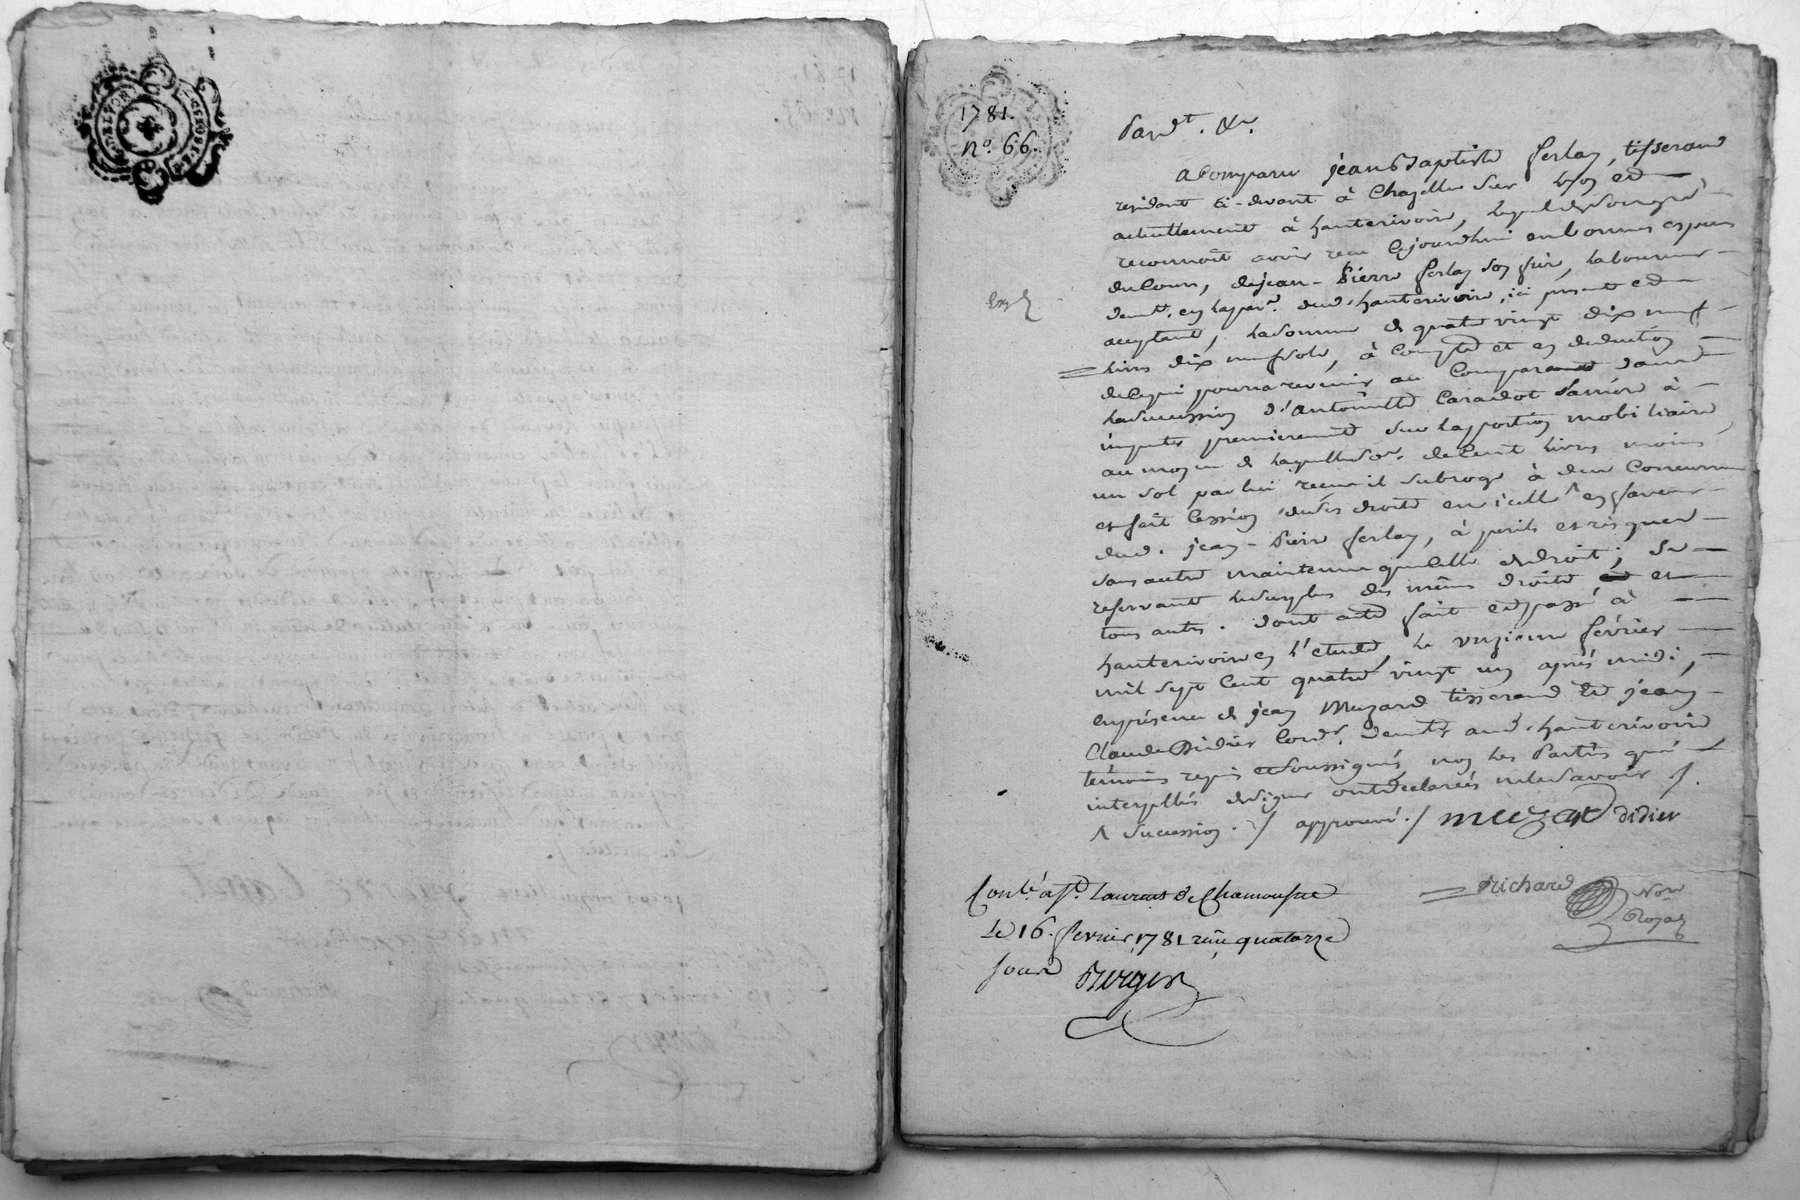 1781.
n°. 66.
Pard.t &c.
a Comparu jean Baptiste ferlay, tisserand
residant ci-devant à Chazelles sur Lyon et
actuellement à hauterivoire, lequel de son gré
reconnoit avoir recu cejourdhui en bonnes especes
du Cours, de jean-Pierre ferlay son frère, laboureur
demt. en la parr. dud. hauterivoire, ici présent et
acceptant, la somme de quatre vingt dix neuf
livres dix neuf sols, à Compte et en déduction
de ce qui pourra revenir au Comparant dans
la succession d'Antoinette Caradot sa mère à
imputer premierement sur la portion mobiliaire
au moyen de laquelle so.e de Cent livres moins
un sol par lui recue il subroge à due Concurrence
et fait Cession de ses droits en icelle ^ en faveur
dud. jean-Pierre ferlay, à perils et risques
sans autre maintenue que celle de droit; se
reservant le surplus des mêmes droits et
tous autres. dont acte fait et passé à
hauterivoire en l'etude, le onzieme février
mil sept Cent quatre vingt un après midi,
en présence de jean Muzard tisserand et jean
Claude Didier Cord.r demts. aud. hauterivoire
témoins requis et soussignés non les Parties qui
interpellés de signer ont déclarés ne le savoir /.
^ succession. / approuvé. / muzard didier
Richard Nore
Royal
Conlé. a St. Laurent De Chamousset
Le 16. fevrier 1781 reçu quatorze
sous Berger